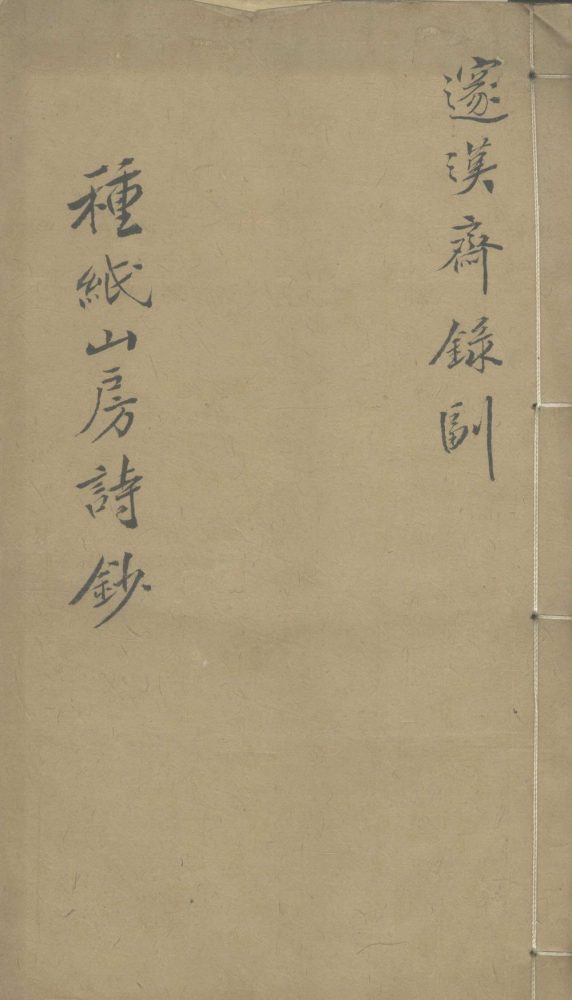 邃漢齋錄副
種紙山房詩鈔